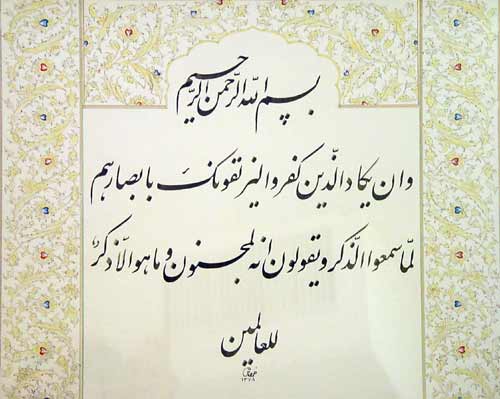 بسم الله الرّحمن الرّحیم
وان یکاد الّذین کفروا لیزلقونک بابصارهم
لمّا سمعوا الذّکر و یقولون انه لمجنون و ما هو الّا ذکرٌ
للعالمین
۱۳۷۸